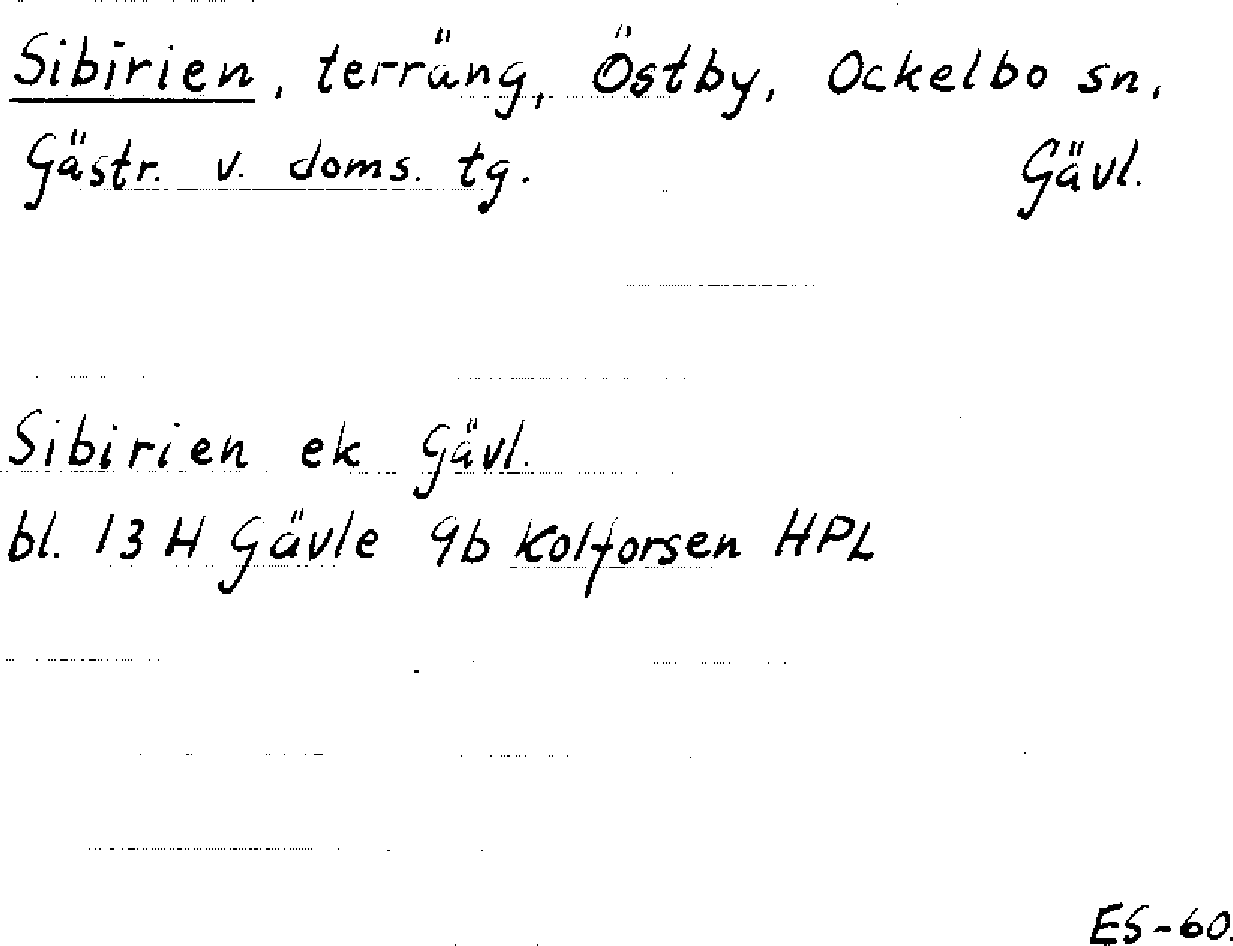 Sibirien, terräng, Östby, Ockelbo sn,
Gästr. v. doms. tg. Gävl.
Sibirien ek Gävl.
bl. 13 H Gävle 9b Kolforsen HPL
ES-60.